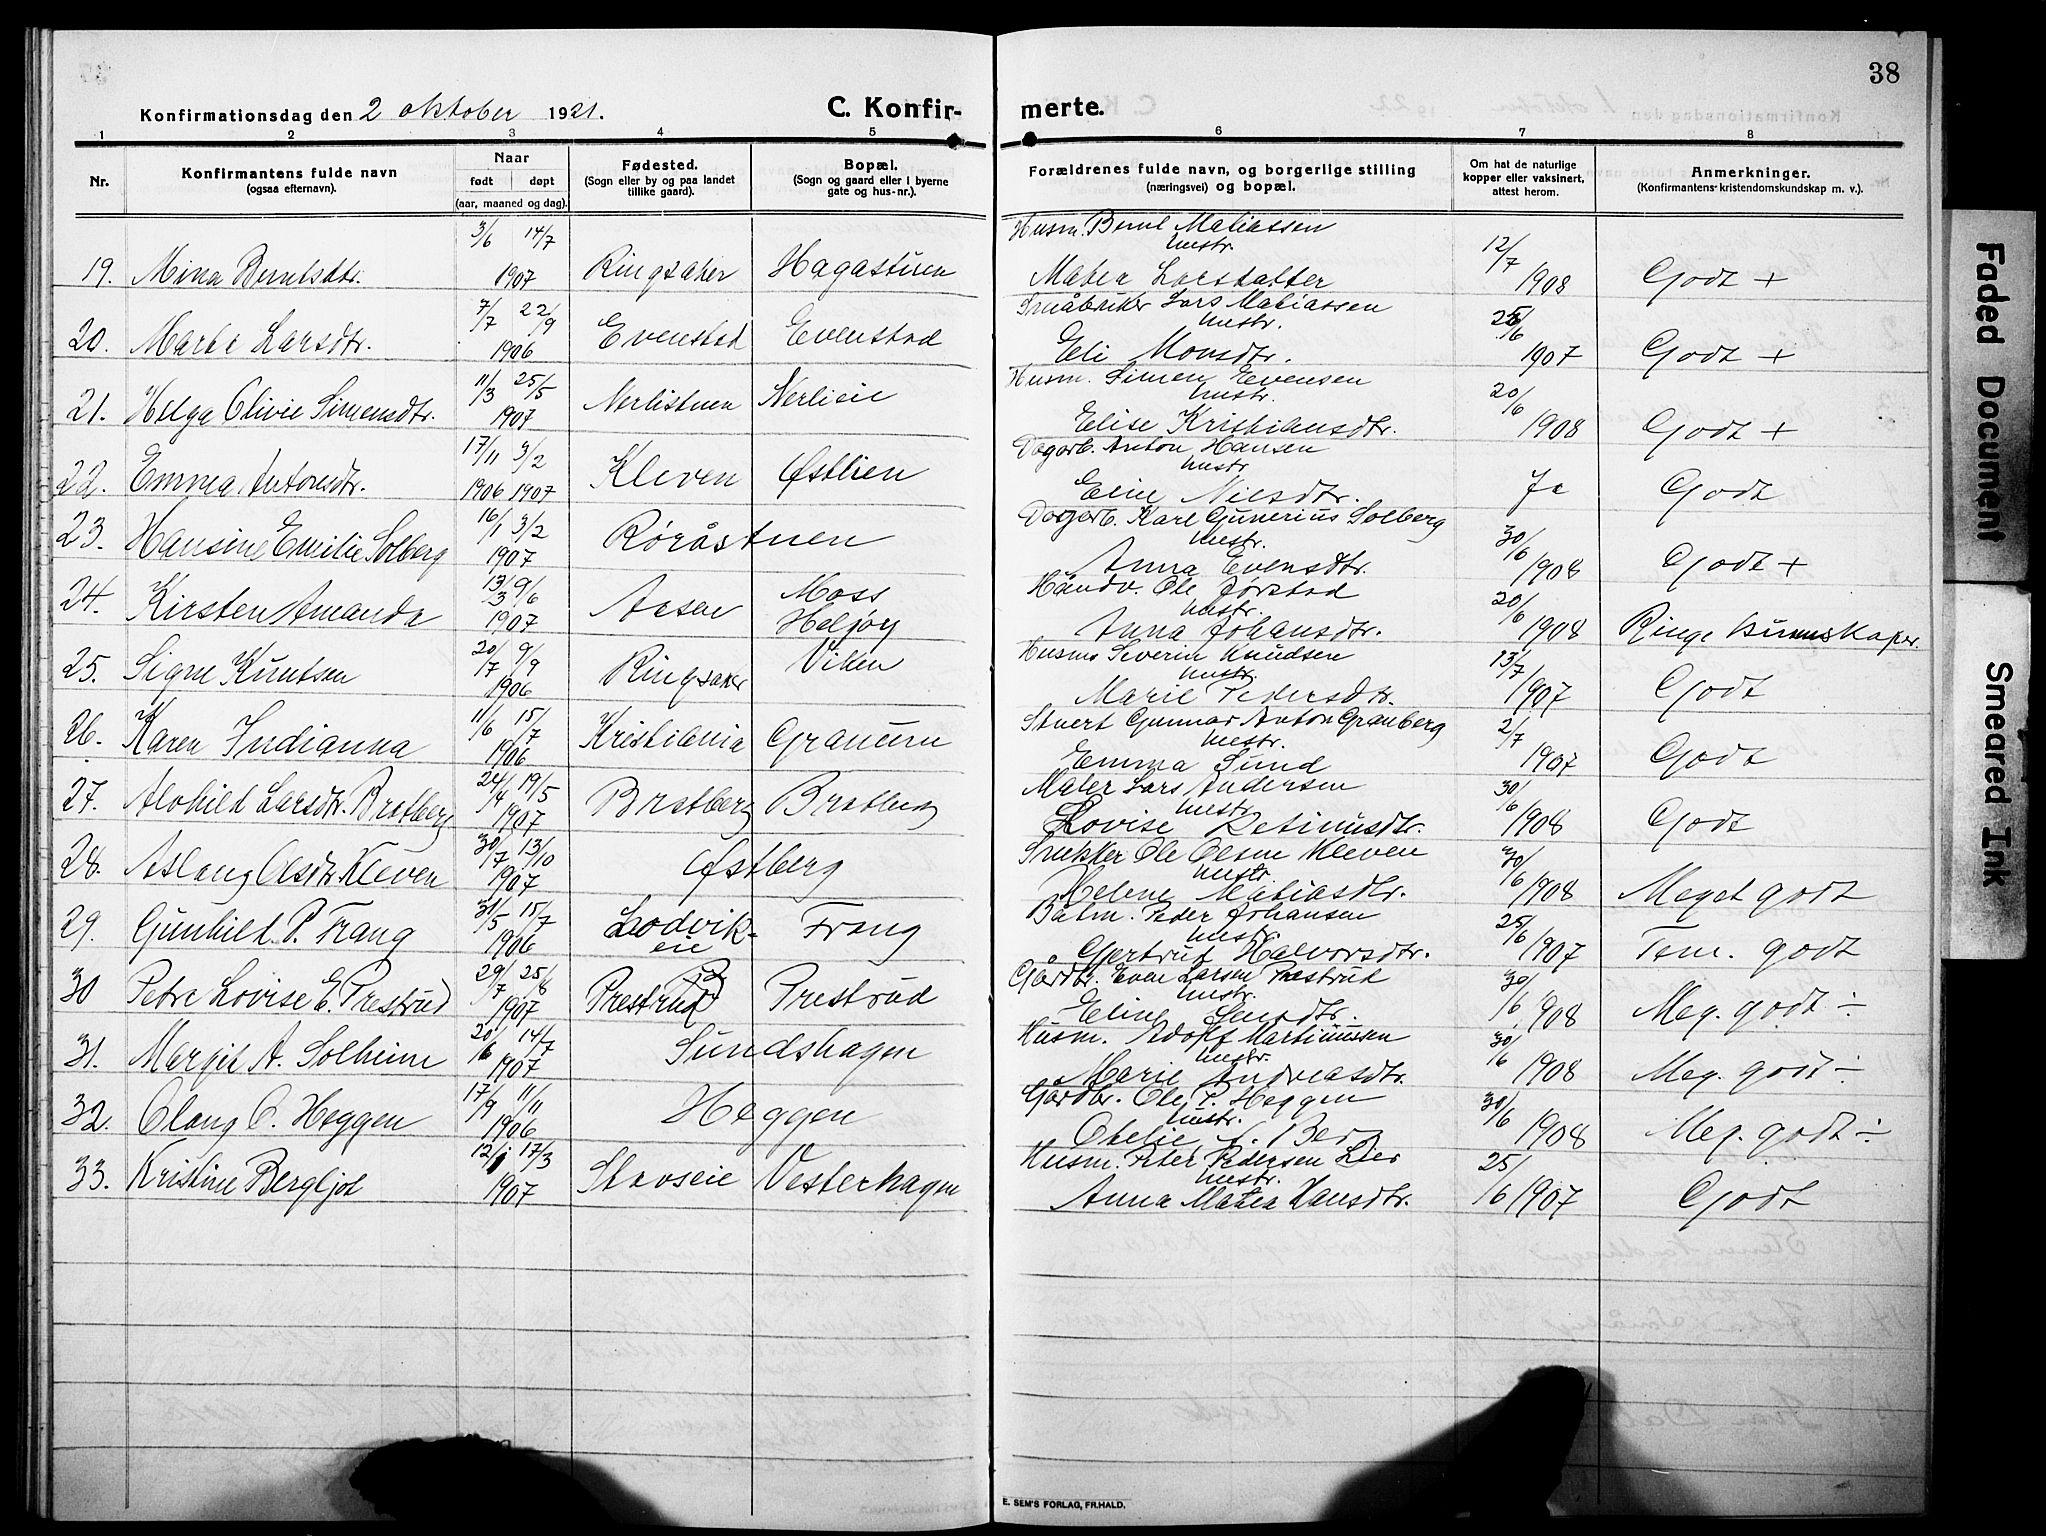 38
Konfirmationsdag den 2 oktober 1921.
C. Konfirmerte.
1 2 3 4 5 6 7 8
Nr.
Konfirmantens fulde navn
(ogsaa efternavn).
Naar
født døpt
(aar, maaned og dag).
Fødested.
(Sogn eller by og paa landet
tillike gaard).
Bopæl.
(Sogn og gaard eller i byerne
gate og hus-nr.).
Forældrenes fulde navn, og borgerlige stilling
(næringsvei) og bopæl.
Om hat de naturlige
kopper eller vaksinert,
attest herom.
Anmerkninger.
(Konfirmantens kristendomskundskap m. v.).
19. Mina Berntsdtr. 3/6 14/7 1907 Ringsaker Hagastuen
Husm. Bernt Matiassen
Hustr.
Matea Larsdatter 12/7 1908 Godt +
20. Marte Larsdtr. 7/7 22/9 1906 Evenstad Evenstad
Småbruker Lars Matiassen
Hustr.
Eli Monsdtr. 25/6 1907 Godt +
21. Helga Olivie Simensdtr. 11/3 25/5 1907 Nerlistuen Nerlieie
Husm. Simen Evensen
Hustr.
Elise Kristiansdtr. 20/6 1908 Godt +
22. Emma Antonsdtr. 17/11 3/2 1906 1907 Kleven Østlien
Dagarb. Anton Hansen
Hustr
Eline Nilsdtr. Ja Godt
23. Hansine Emilie Solberg 16/1 3/2 1907 Røråstuen
Dagarb. Karl Gunerius Solberg
Hustr.
Anna Evensdtr. 30/6 1908 Godt +
24. Kirsten Amanda 13/3 9/6 1907 Aasen Moss
Helgøy
Håndv. Ole Jørstad
Hustr.
Anna Johansdtr. 20/6 1908 Ringe kunnskaper.
25. Signe Knutsen 20/7 9/9 1906 Ringsaker Viken
Husm Severin Knudsen
Hustr.
Marie Pedersdtr. 13/7 1907 Godt
26. Karen Indianna 11/6 15/7 1906 Kristiania Granum
Stuert Gunnar Anton Granberg
Hustr.
Emma Sund 2/7 1907 Godt
27. Alvhild Larsdtr. Bratberg 24/4 19/5 1907 Bratberg Bratberg
Maler Lars Andersen
Hustr.
Lovise Petinusdtr. 30/6 1908 Godt
28. Aslaug Olsdtr Kleven 30/7 13/10 1907 Østberg
Snekker Ole Olsen Kleven
Hustr.
Helene Matiasdtr. 30/6 1908 Meget godt
29. Gunhild P. Frang 31/5 15/7 1906 Lodvik-
eie Frang
Båtm. Peder Johansen
Hustr.
Gjertrud Halvorsdtr. 25/6 1907 Tem. godt
30 Petra Lovise E. Prestrud 29/7 25/8 1907 Prestrud Prestrud
Gårdbr. Even Larsen Prestrud
Hustr.
Eline Jensdtr. 30/6 908 Meg. godt ÷
31. Margit A. Solheim 20/6 14/7 1907 Sundshagen
Husm. Adolf Martinussen
Hustr.
Marie Andreasdtr. 30/6 1908 Meg. godt ÷
32. Olaug O. Heggen 17/9 11/11 1906 Heggen
Gårdbr. Ole P. Heggen
Hustr.
Otelie J. Berg 30/6 1908 Meg. godt ÷
33. Kristine Bergljot 12/1 17/3 1907 Stavseie Vesterhagen
Husm. Peter Pedersen Lier
Hustr.
Anna Matea Hansdtr. 25/6 1907 Godt
E. SEM'S FORLAG, FR.HALD.
Faded Document
Smeared Ink